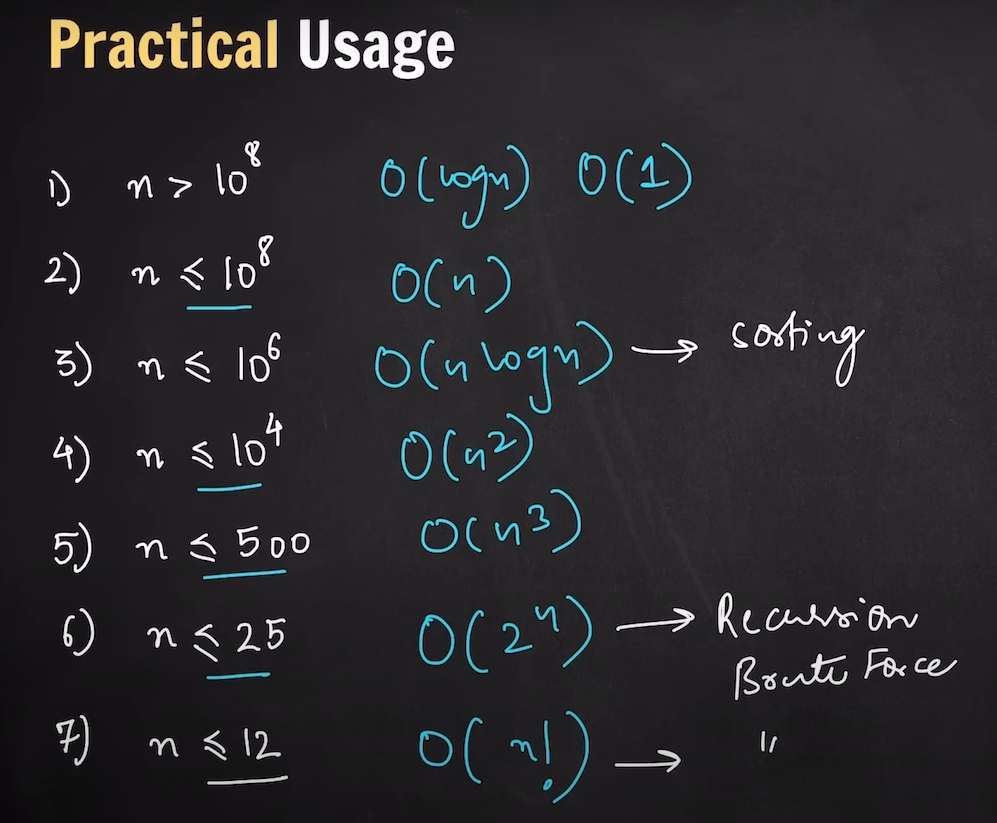 Practical Usage
1) n > 10⁸ O(logn) O(1)
2) n ≤ 10⁸ O(n)
3) n ≤ 10⁶ O(n logn) → sorting
4) n ≤ 10⁴ O(n²)
5) n ≤ 500 O(n³)
6) n ≤ 25 O(2ⁿ) → Recursion
Brute Force
7) n ≤ 12 O(n!) → "